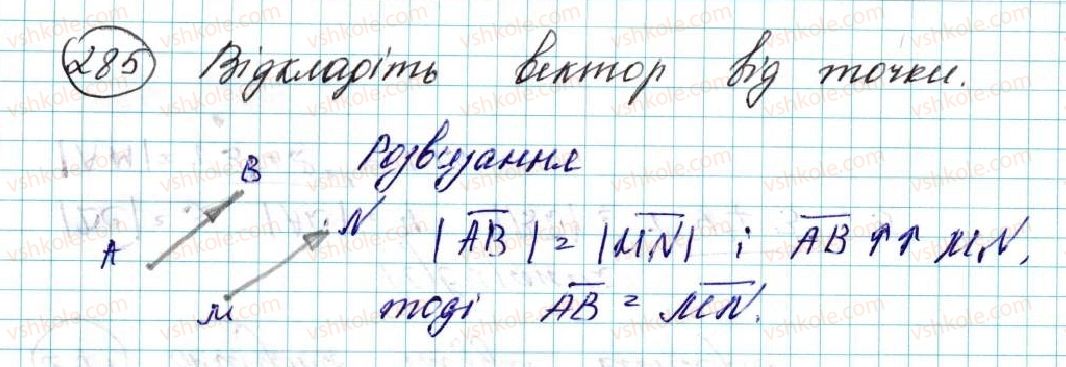 285 Відкладіть вектор від точки.
Розв'язання
B
A
N
M
|AB| = |MN| і AB ↑↑ MN,
тоді AB = MN.